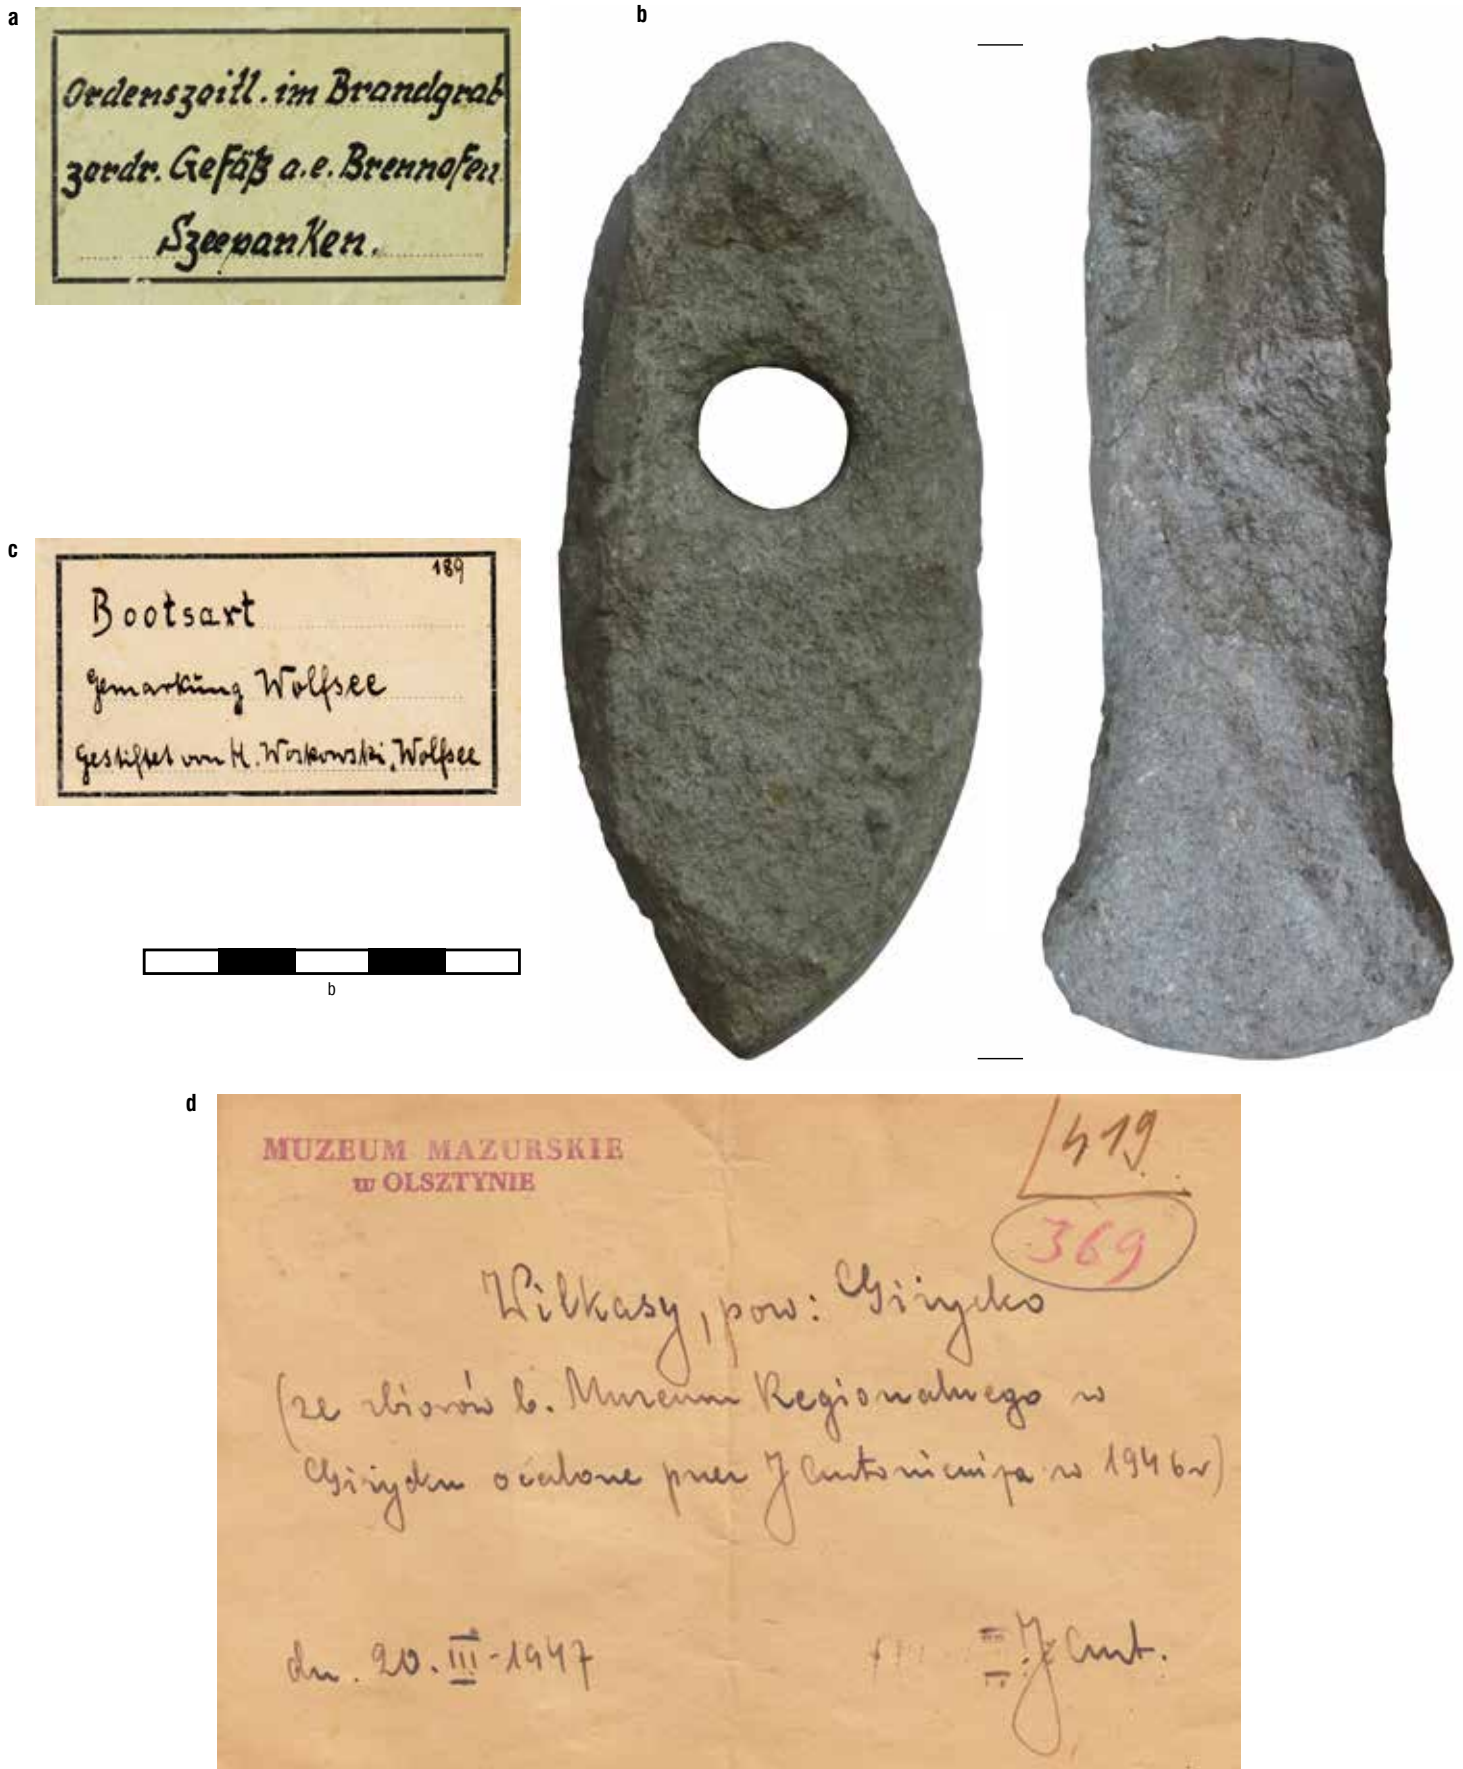 a
Ordenszeitl. im Brandgrab
zerdr. Gefäß a. e. Brennofen
Szczepanken.
b
c
189
Bootsaxt
Gemarkung Wolfsee
Gestiftet von H. Woskowski, Wolfsee
b
d
MUZEUM MAZURSKIE
w OLSZTYNIE
419
369
Wilkasy, pow: Giżycko
(ze zbiorów b. Muzeum Regionalnego w
Giżycku ocalone przez J Antoniewicza w 1946 r)
dn. 20. III - 1947
J Ant.